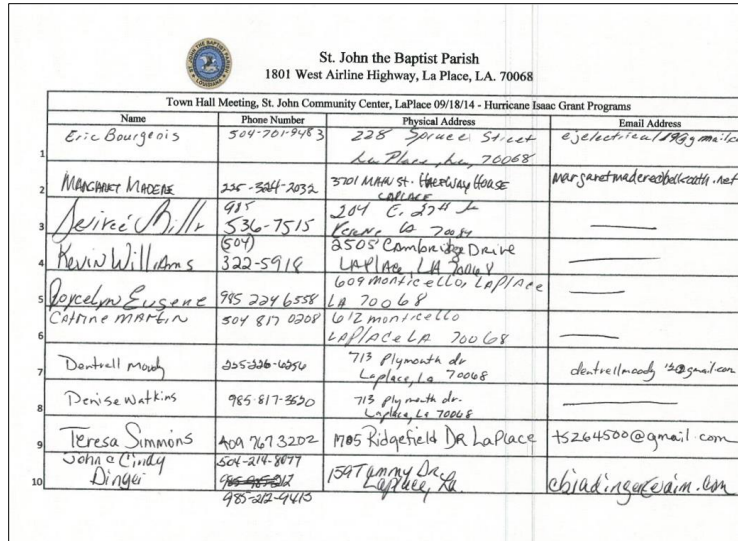 ST. JOHN THE BAPTIST PARISH
LOUISIANA
St. John the Baptist Parish
1801 West Airline Highway, La Place, LA. 70068
Town Hall Meeting, St. John Community Center, LaPlace 09/18/14 - Hurricane Isaac Grant Programs
Name Phone Number Physical Address Email Address
1 Eric Bourgeois 504-701-9483 228 Spruce Street
LaPlace, La, 70068
2 MARGARET MADERE 225-324-2032 3701 MAIN St. HALFWAY HOUSE margaretmadere@bellsouth.net
LAPLACE
3 985 536-7515 204 E. 27th
LA 70084
4 Kevin Williams (504) 322-5918 2505 Cambridge Drive
LAPlace, LA 70068
5 Joycelyn Eugene 985 224 6558 609 monticello, LaPlace
LA 70068
6 MARTIN 504 817 0208 612 monticello
LAPlace LA 70068
7 Dentrell Moody 225-226-6256 713 Plymouth dr
Laplace, La 70068
8 Denise Watkins 985-817-3520 713 Plymouth dr.
Laplace, La 70068
9 Teresa Simmons 409 767 3202 1705 Ridgefield DR LaPlace ts264500@gmail.com
10 John & Cindy 504-214-8077 159 Tammy Dr.
Laplace, La.
985-212-9413